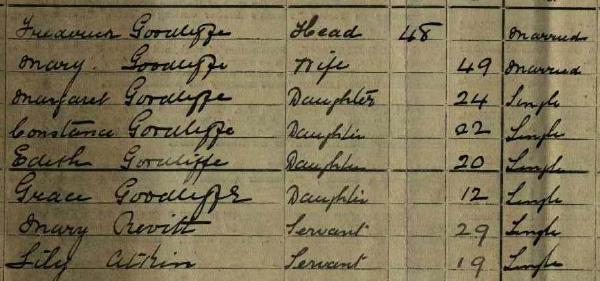 Frederick Goodliffe Head 48 Married
Mary Goodliffe Wife 49 Married
Margaret Goodliffe Daughter 24 Single
Constance Goodliffe Daughter 22 Single
Edith Goodliffe Daughter 20 Single
Grace Goodliffe Daughter 12 Single
Mary Revitt Servant 29 Single
Lily Atkin Servant 19 Single